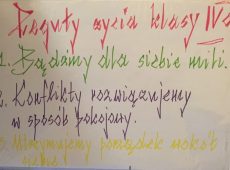 Reguły życia klasy IV
1. Bądźmy dla siebie mili.
2. Konflikty rozwiązujemy
w sposób pokojowy.
3. Utrzymujemy porządek wokół
siebie